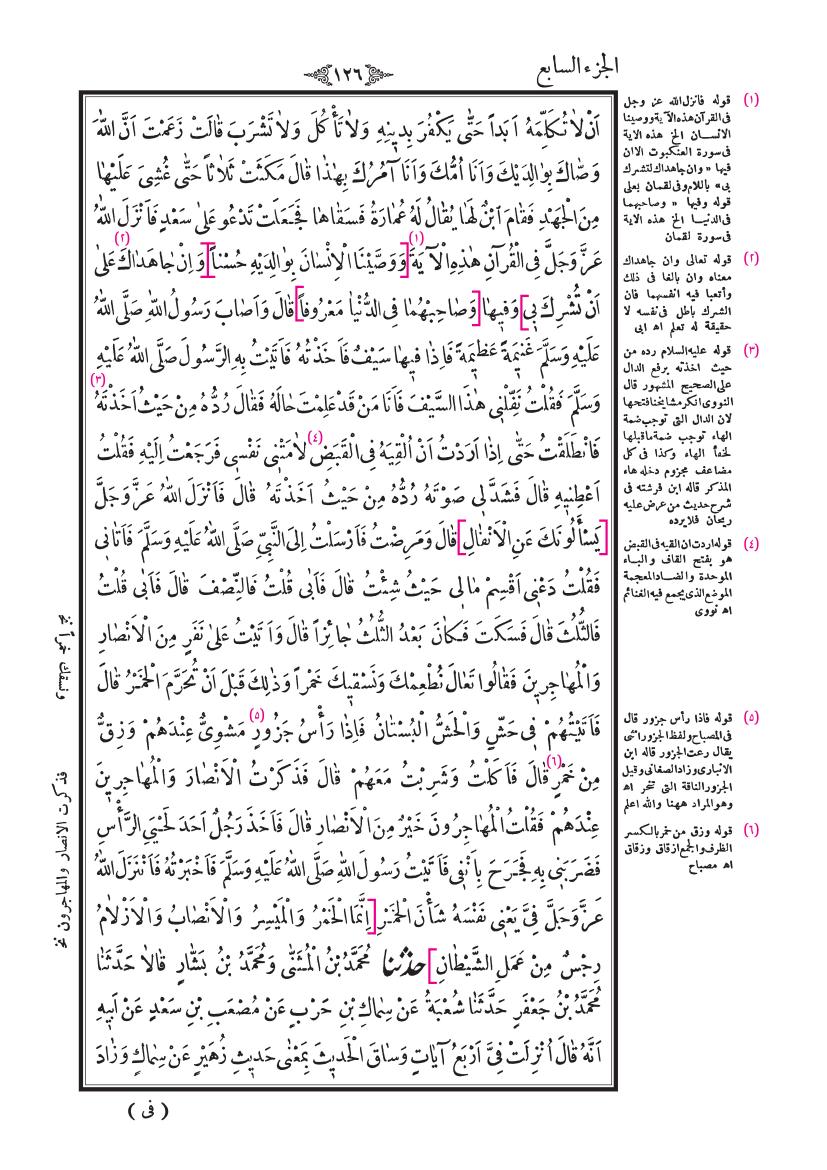 الجزء السابع
١٢٦
اَنْ لاٰ تُكَلِّمَهُ اَبَداً حَتّٰى يَكْفُرَ بِدِينِهِ وَلاٰ تَأْكُلَ وَلاٰ تَشْرَبَ قَالَتْ زَعَمْتَ اَنَّ اللّٰهَ
وَصّٰاكَ بِوٰالِدَيْكَ وَاَنَا اُمُّكَ وَاَنَا آمُرُكَ بِهٰذٰا قٰالَ مَكَثَتْ ثَلاٰثاً حَتّٰى غُشِىَ عَلَيْهٰا
مِنَ الْجَهْدِ فَقٰامَ ابْنٌ لَهٰا يُقٰالُ لَهُ عُمٰارَةُ فَسَقٰاهٰا فَجَعَلَتْ تَدْعُو عَلىٰ سَعْدٍ فَاَنْزَلَ اللّٰهُ
عَزَّ وَجَلَّ فِى الْقُرْآنِ هٰذِهِ الْآيَةَ (١) [وَوَصَّيْنَا الْاِنْسٰانَ بِوٰالِدَيْهِ حُسْناً] [وَاِنْ جٰاهَدٰاكَ (٢) عَلىٰ
اَنْ تُشْرِكَ بِى] وَفِيهٰا [وَصٰاحِبْهُمٰا فِى الدُّنْيٰا مَعْرُوفاً] قٰالَ وَاَصٰابَ رَسُولُ اللّٰهِ صَلَّى اللّٰهُ
عَلَيْهِ وَسَلَّمَ غَنِيمَةً عَظِيمَةً فَاِذٰا فِيهٰا سَيْفٌ فَاَخَذْتُهُ فَاَتَيْتُ بِهِ الرَّسُولَ صَلَّى اللّٰهُ عَلَيْهِ
وَسَلَّمَ فَقُلْتُ نَفِّلْنِى هٰذَا السَّيْفَ فَاَنَا مَنْ قَدْ عَلِمْتَ حٰالَهُ فَقٰالَ رُدُّهُ مِنْ حَيْثُ اَخَذْتَهُ (٣)
فَانْطَلَقْتُ حَتّٰى اِذٰا اَرَدْتُ اَنْ اُلْقِيَهُ فِى الْقَبَضِ (٤) لاٰمَتْنِى نَفْسِى فَرَجَعْتُ اِلَيْهِ فَقُلْتُ
اَعْطِنِيهِ قٰالَ فَشَدَّ لِى صَوْتَهُ رُدُّهُ مِنْ حَيْثُ اَخَذْتَهُ قٰالَ فَاَنْزَلَ اللّٰهُ عَزَّ وَجَلَّ
[يَسْأَلُونَكَ عَنِ الْاَنْفٰالِ] قٰالَ وَمَرِضْتُ فَاَرْسَلْتُ اِلَى النَّبِىِّ صَلَّى اللّٰهُ عَلَيْهِ وَسَلَّمَ فَاَتٰانِى
فَقُلْتُ دَعْنِى اَقْسِمْ مٰالِى حَيْثُ شِئْتُ قٰالَ فَاَبٰى قُلْتُ فَالنِّصْفَ قٰالَ فَاَبٰى قُلْتُ
فَالثُّلُثَ قٰالَ فَسَكَتَ فَكٰانَ بَعْدُ الثُّلُثُ جٰائِزاً قٰالَ وَاَتَيْتُ عَلىٰ نَفَرٍ مِنَ الْاَنْصٰارِ
وَالْمُهٰاجِرِينَ فَقٰالُوا تَعٰالَ نُطْعِمْكَ وَنَسْقِيكَ خَمْراً وَذٰلِكَ قَبْلَ اَنْ تُحَرَّمَ الْخَمْرُ قٰالَ
فَاَتَيْتُهُمْ فِى حَشٍّ وَالْحَشُّ الْبُسْتٰانُ فَاِذٰا رَأْسُ جَزُورٍ (٥) مَشْوِىٌّ عِنْدَهُمْ وَزِقٌّ
مِنْ خَمْرٍ (٦) قٰالَ فَاَكَلْتُ وَشَرِبْتُ مَعَهُمْ قٰالَ فَذَكَرْتُ الْاَنْصٰارَ وَالْمُهٰاجِرِينَ
عِنْدَهُمْ فَقُلْتُ الْمُهٰاجِرُونَ خَيْرٌ مِنَ الْاَنْصٰارِ قٰالَ فَاَخَذَ رَجُلٌ اَحَدَ لَحْيَىِ الرَّأْسِ
فَضَرَبَنِى بِهِ فَجَرَحَ بِاَنْفِى فَاَتَيْتُ رَسُولَ اللّٰهِ صَلَّى اللّٰهُ عَلَيْهِ وَسَلَّمَ فَاَخْبَرْتُهُ فَاَنْزَلَ اللّٰهُ
عَزَّ وَجَلَّ فِىَّ يَعْنِى نَفْسَهُ شَأْنَ الْخَمْرِ [اِنَّمَا الْخَمْرُ وَالْمَيْسِرُ وَالْاَنْصٰابُ وَالْاَزْلاٰمُ
رِجْسٌ مِنْ عَمَلِ الشَّيْطٰانِ] حدثنا مُحَمَّدُ بْنُ الْمُثَنّٰى وَمُحَمَّدُ بْنُ بَشّٰارٍ قٰالاٰ حَدَّثَنٰا
مُحَمَّدُ بْنُ جَعْفَرٍ حَدَّثَنٰا شُعْبَةُ عَنْ سِمٰاكِ بْنِ حَرْبٍ عَنْ مُصْعَبِ بْنِ سَعْدٍ عَنْ اَبِيهِ
اَنَّهُ قٰالَ اُنْزِلَتْ فِىَّ اَرْبَعُ آيٰاتٍ وَسٰاقَ الْحَدِيثَ بِمَعْنٰى حَدِيثِ زُهَيْرٍ عَنْ سِمٰاكٍ وَزٰادَ
( فى )
(١) قوله فانزل الله عز وجل
فى القرآن هذه الآية ووصينا
الانسان الخ هذه الاية
فى سورة العنكبوت الا ان
فيها « وان جاهداك لتشرك
بى» باللام وفى لقمان بعلى
قوله وفيها « وصاحبهما
فى الدنيا الخ هذه الاية
فى سورة لقمان
(٢) قوله تعالى وان جاهداك
معناه وان بالغا فى ذلك
وأتعبا فيه انفسهما فان
الشرك باطل فى نفسه لا
حقيقة له تعلم اه ابى
(٣) قوله عليه السلام رده من
حيث اخذته برفع الدال
على الصحيح المشهور قال
النووى انكر مشايخنا فتحها
لان الدال التى توجب ضمة
الهاء توجب ضمة ماقبلها
لخفأ الهاء وكذا فى كل
مضاعف مجزوم دخله هاء
المذكر قاله ابن فرشته فى
شرح حديث من عرض عليه
ريحان فلا يرده
(٤) قوله اردت ان القيه فى القبض
هو بفتح القاف والباء
الموحدة والضاد المعجمة
الموضع الذى يجمع فيه الغنائم
اه نووى
(٥) قوله فاذا رأس جزور قال
فى المصباح ولفظ الجزور انثى
يقال رعت الجزور قاله ابن
الانبارى وزاد الصغانى وقيل
الجزور الناقة التى تنحر اه
وهو المراد ههنا والله اعلم
(٦) قوله وزق من خمر بالكسر
الظرف والجمع ازقاق وزقاق
اه مصباح
ونسقك خمراً نخ
فذكرت الانصار والمهاجرون نخ